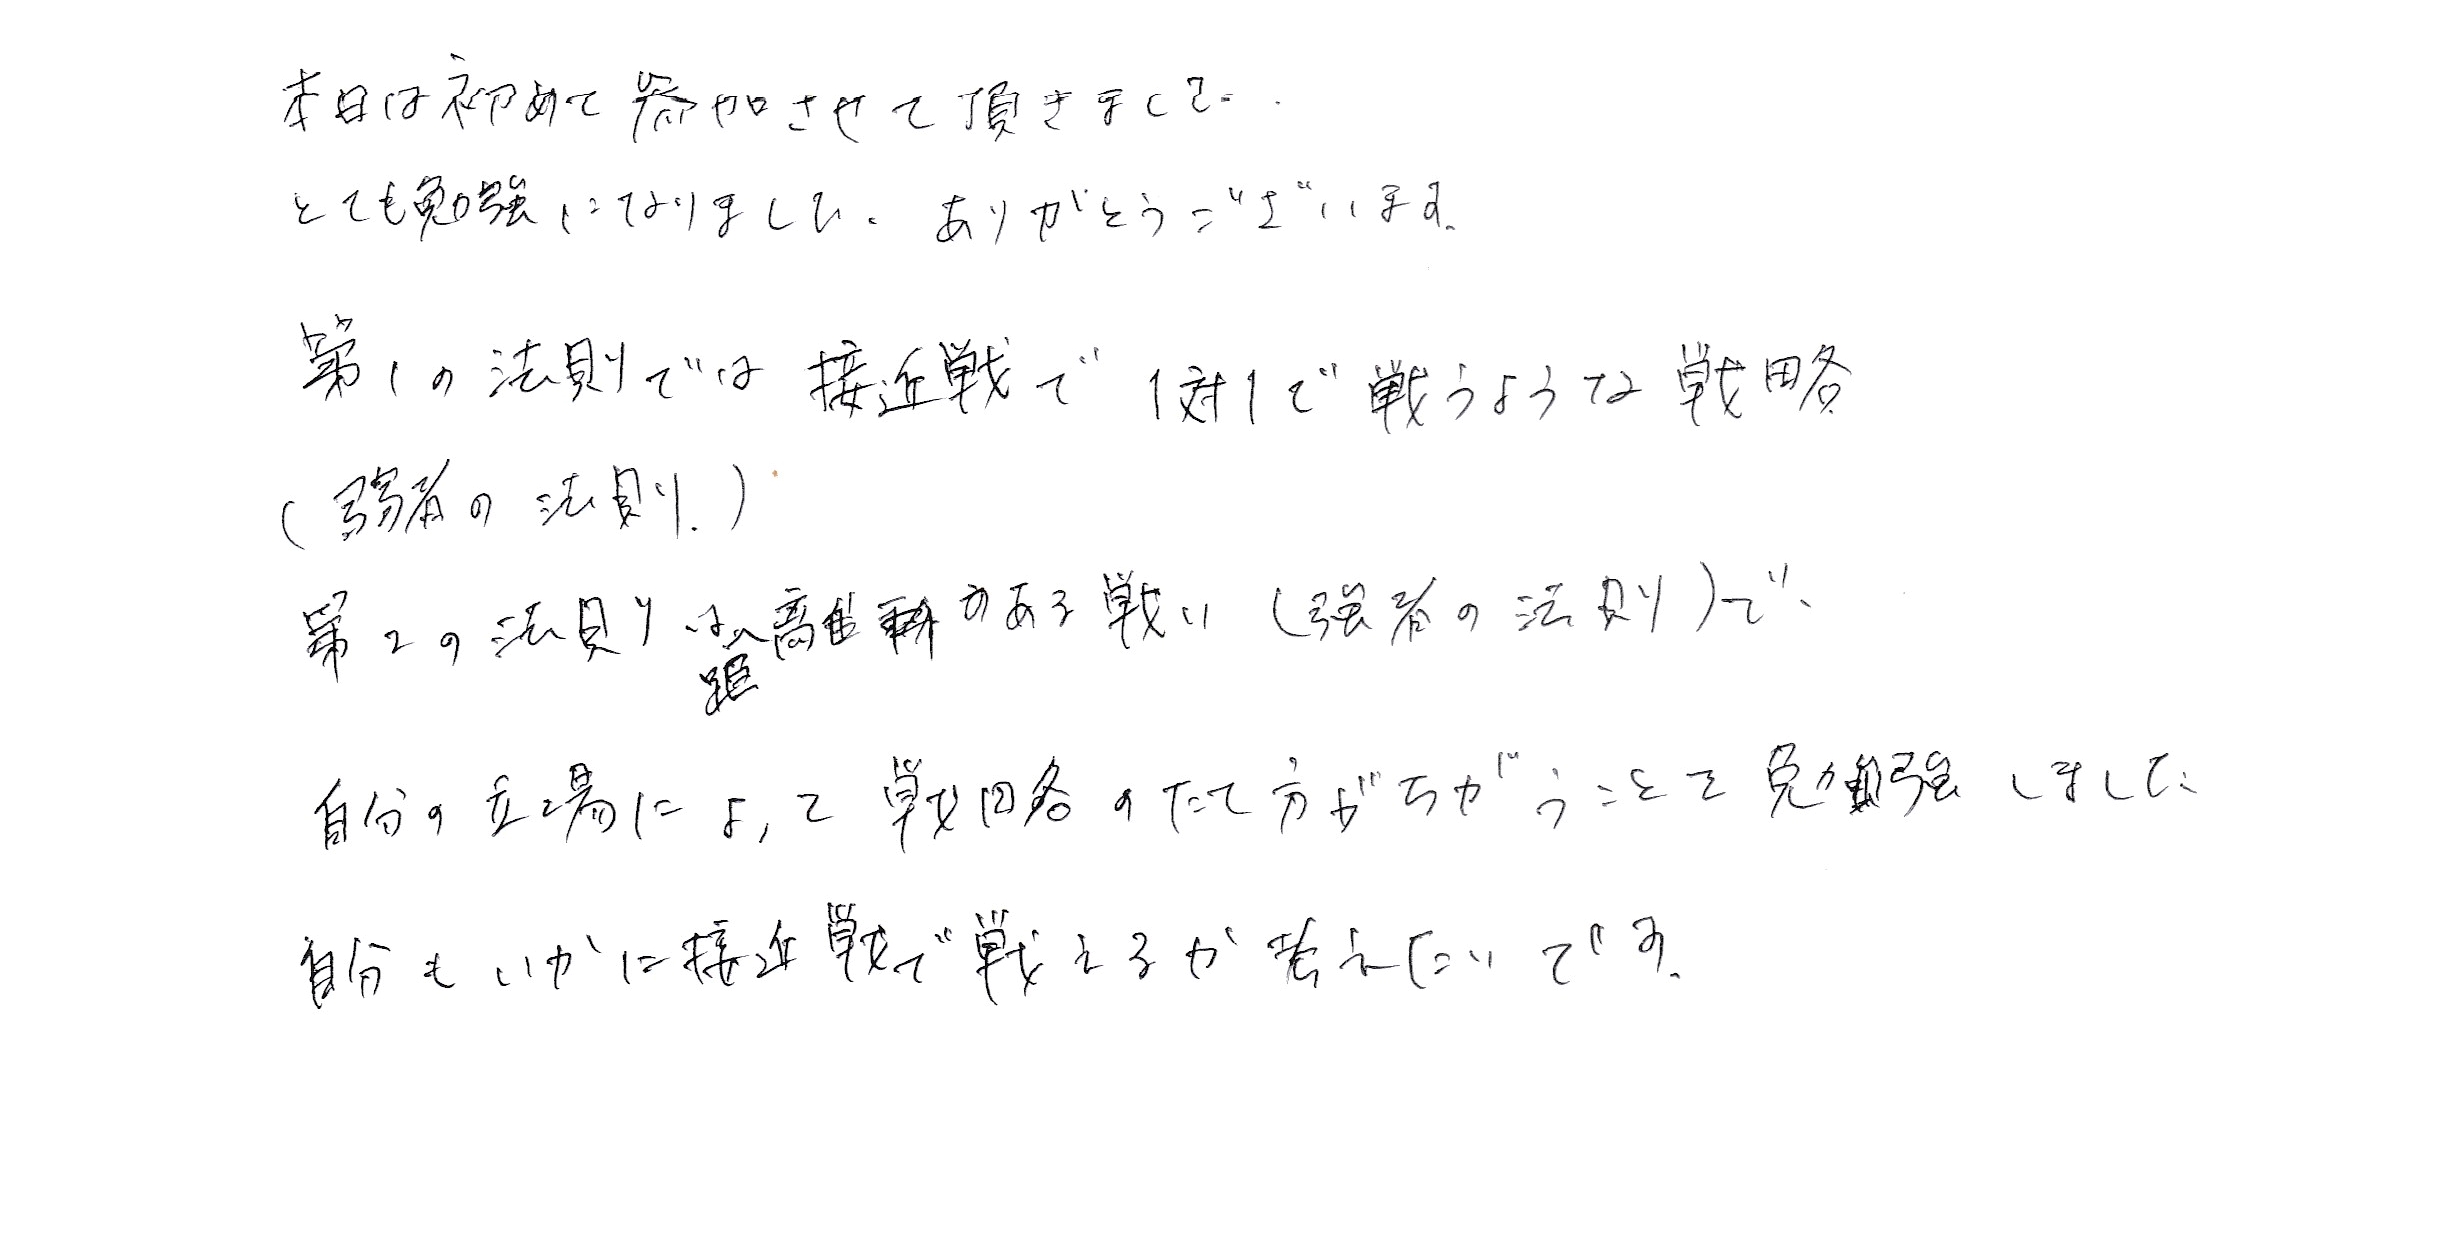 本日は初めて参加させて頂きまして.
とても勉強になりました. ありがとうございます.
第1の法則では接近戦で1対1で戦うような戦略
(弱者の法則.)
第2の法則は距離がある戦い(強者の法則)で、
自分の立場によって戦略のたて方がちがうことを勉強しました
自分もいかに接近戦で戦えるか考えたいです.